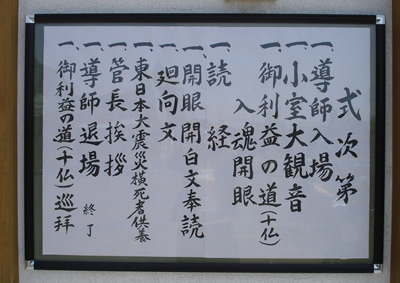 式次第
一、導師入場
一、小室大観音
一、御利益の道(十仏)
入魂開眼
一、読経
一、開眼開白文奉読
一、廻向文
一、東日本大震災横死者供養
一、管長挨拶
一、導師退場 終了
一、御利益の道(十仏)巡拝